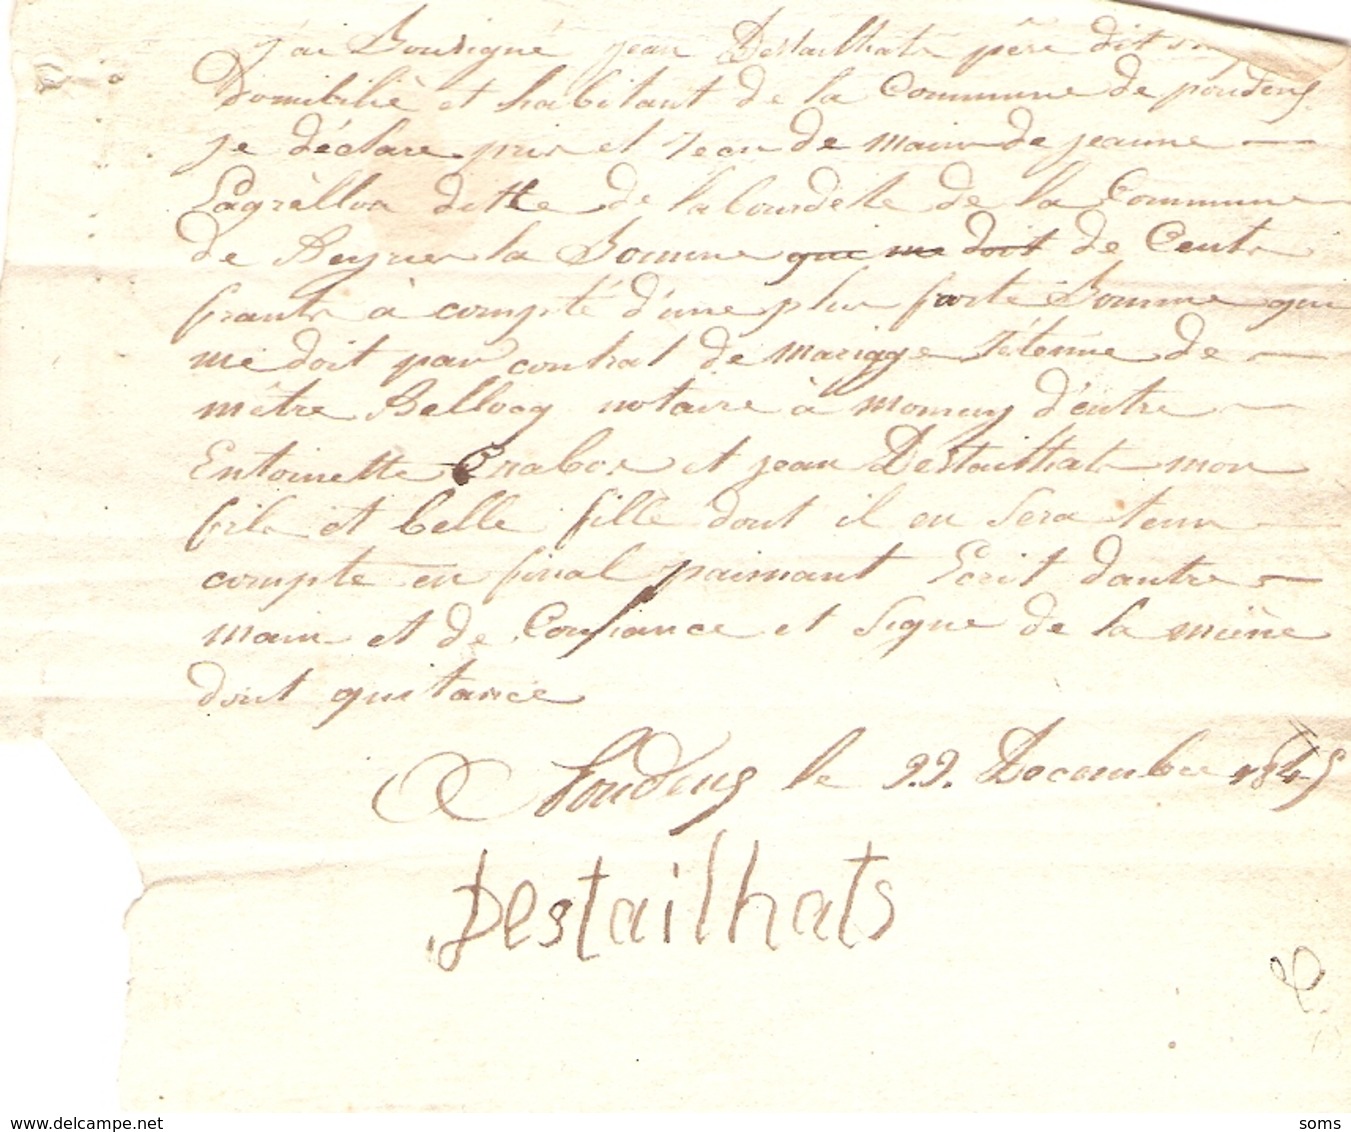 Je Sousigné jean Destailhats père dit
Domibilié et habitant de la Commune de poudens
je déclare pris et recu de main de jeanne
Lagrèllon ditte de lalourdette de la Commune
de Beyries la Somme que me doit de Cents
frants à compte d'une plus forte Somme qui
me doit par contrat de mariage retenue de
mêtre Bellocq notaire à momuy d'entre
Entoinette et jean Destailhats mon
fils et belle fille dont il en sera tenu
compte en final paimant Ecrit dautre
main et de Confiance et signe de la miène
dont quitance
A Poudens le 22. Decembre 1845
Destailhats
www.delcampe.net
soms